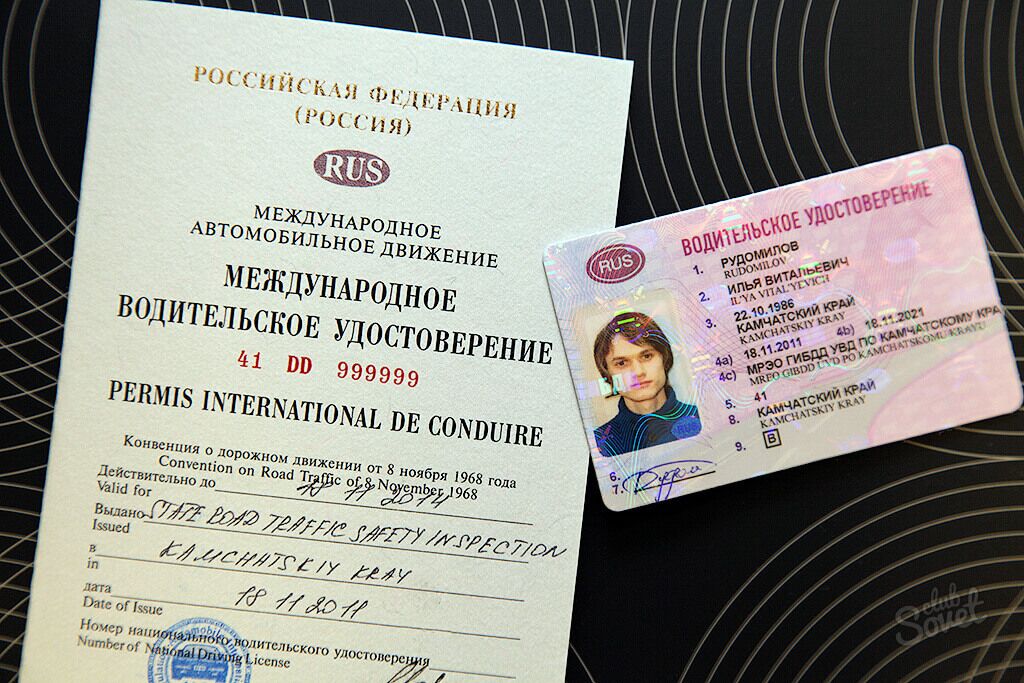 РОССИЙСКАЯ ФЕДЕРАЦИЯ
(РОССИЯ)
RUS
МЕЖДУНАРОДНОЕ
АВТОМОБИЛЬНОЕ ДВИЖЕНИЕ
МЕЖДУНАРОДНОЕ
ВОДИТЕЛЬСКОЕ УДОСТОВЕРЕНИЕ
41 DD 999999
PERMIS INTERNATIONAL DE CONDUIRE
Конвенция о дорожном движении от 8 ноября 1968 года
Convention on Road Traffic of 8 November 1968
Действительно до 18 11 2014
Valid for
Выдано STATE ROAD TRAFFIC SAFETY INSPECTION
Issued
в KAMCHATSKIY KRAY
in
дата 18 11 2011
Date of Issue
Номер национального водительского удостоверения
Number of National Driving License
ВОДИТЕЛЬСКОЕ УДОСТОВЕРЕНИЕ
RUS
1. РУДОМИЛОВ
RUDOMILOV
2. ИЛЬЯ ВИТАЛЬЕВИЧ
IL'YA VITAL'YEVICH
3. 22.10.1986
КАМЧАТСКИЙ КРАЙ
KAMCHATSKIY KRAY
4a) 18.11.2011 4b) 18.11.2021
4c) МРЭО ГИБДД УВД ПО КАМЧАТСКОМУ КРА
MREO GIBDD UVD PO KAMCHATSKOMU KRAYU
5. 41
8. КАМЧАТСКИЙ КРАЙ
KAMCHATSKIY KRAY
9. B
6.
7.
RUS
club
Sovet